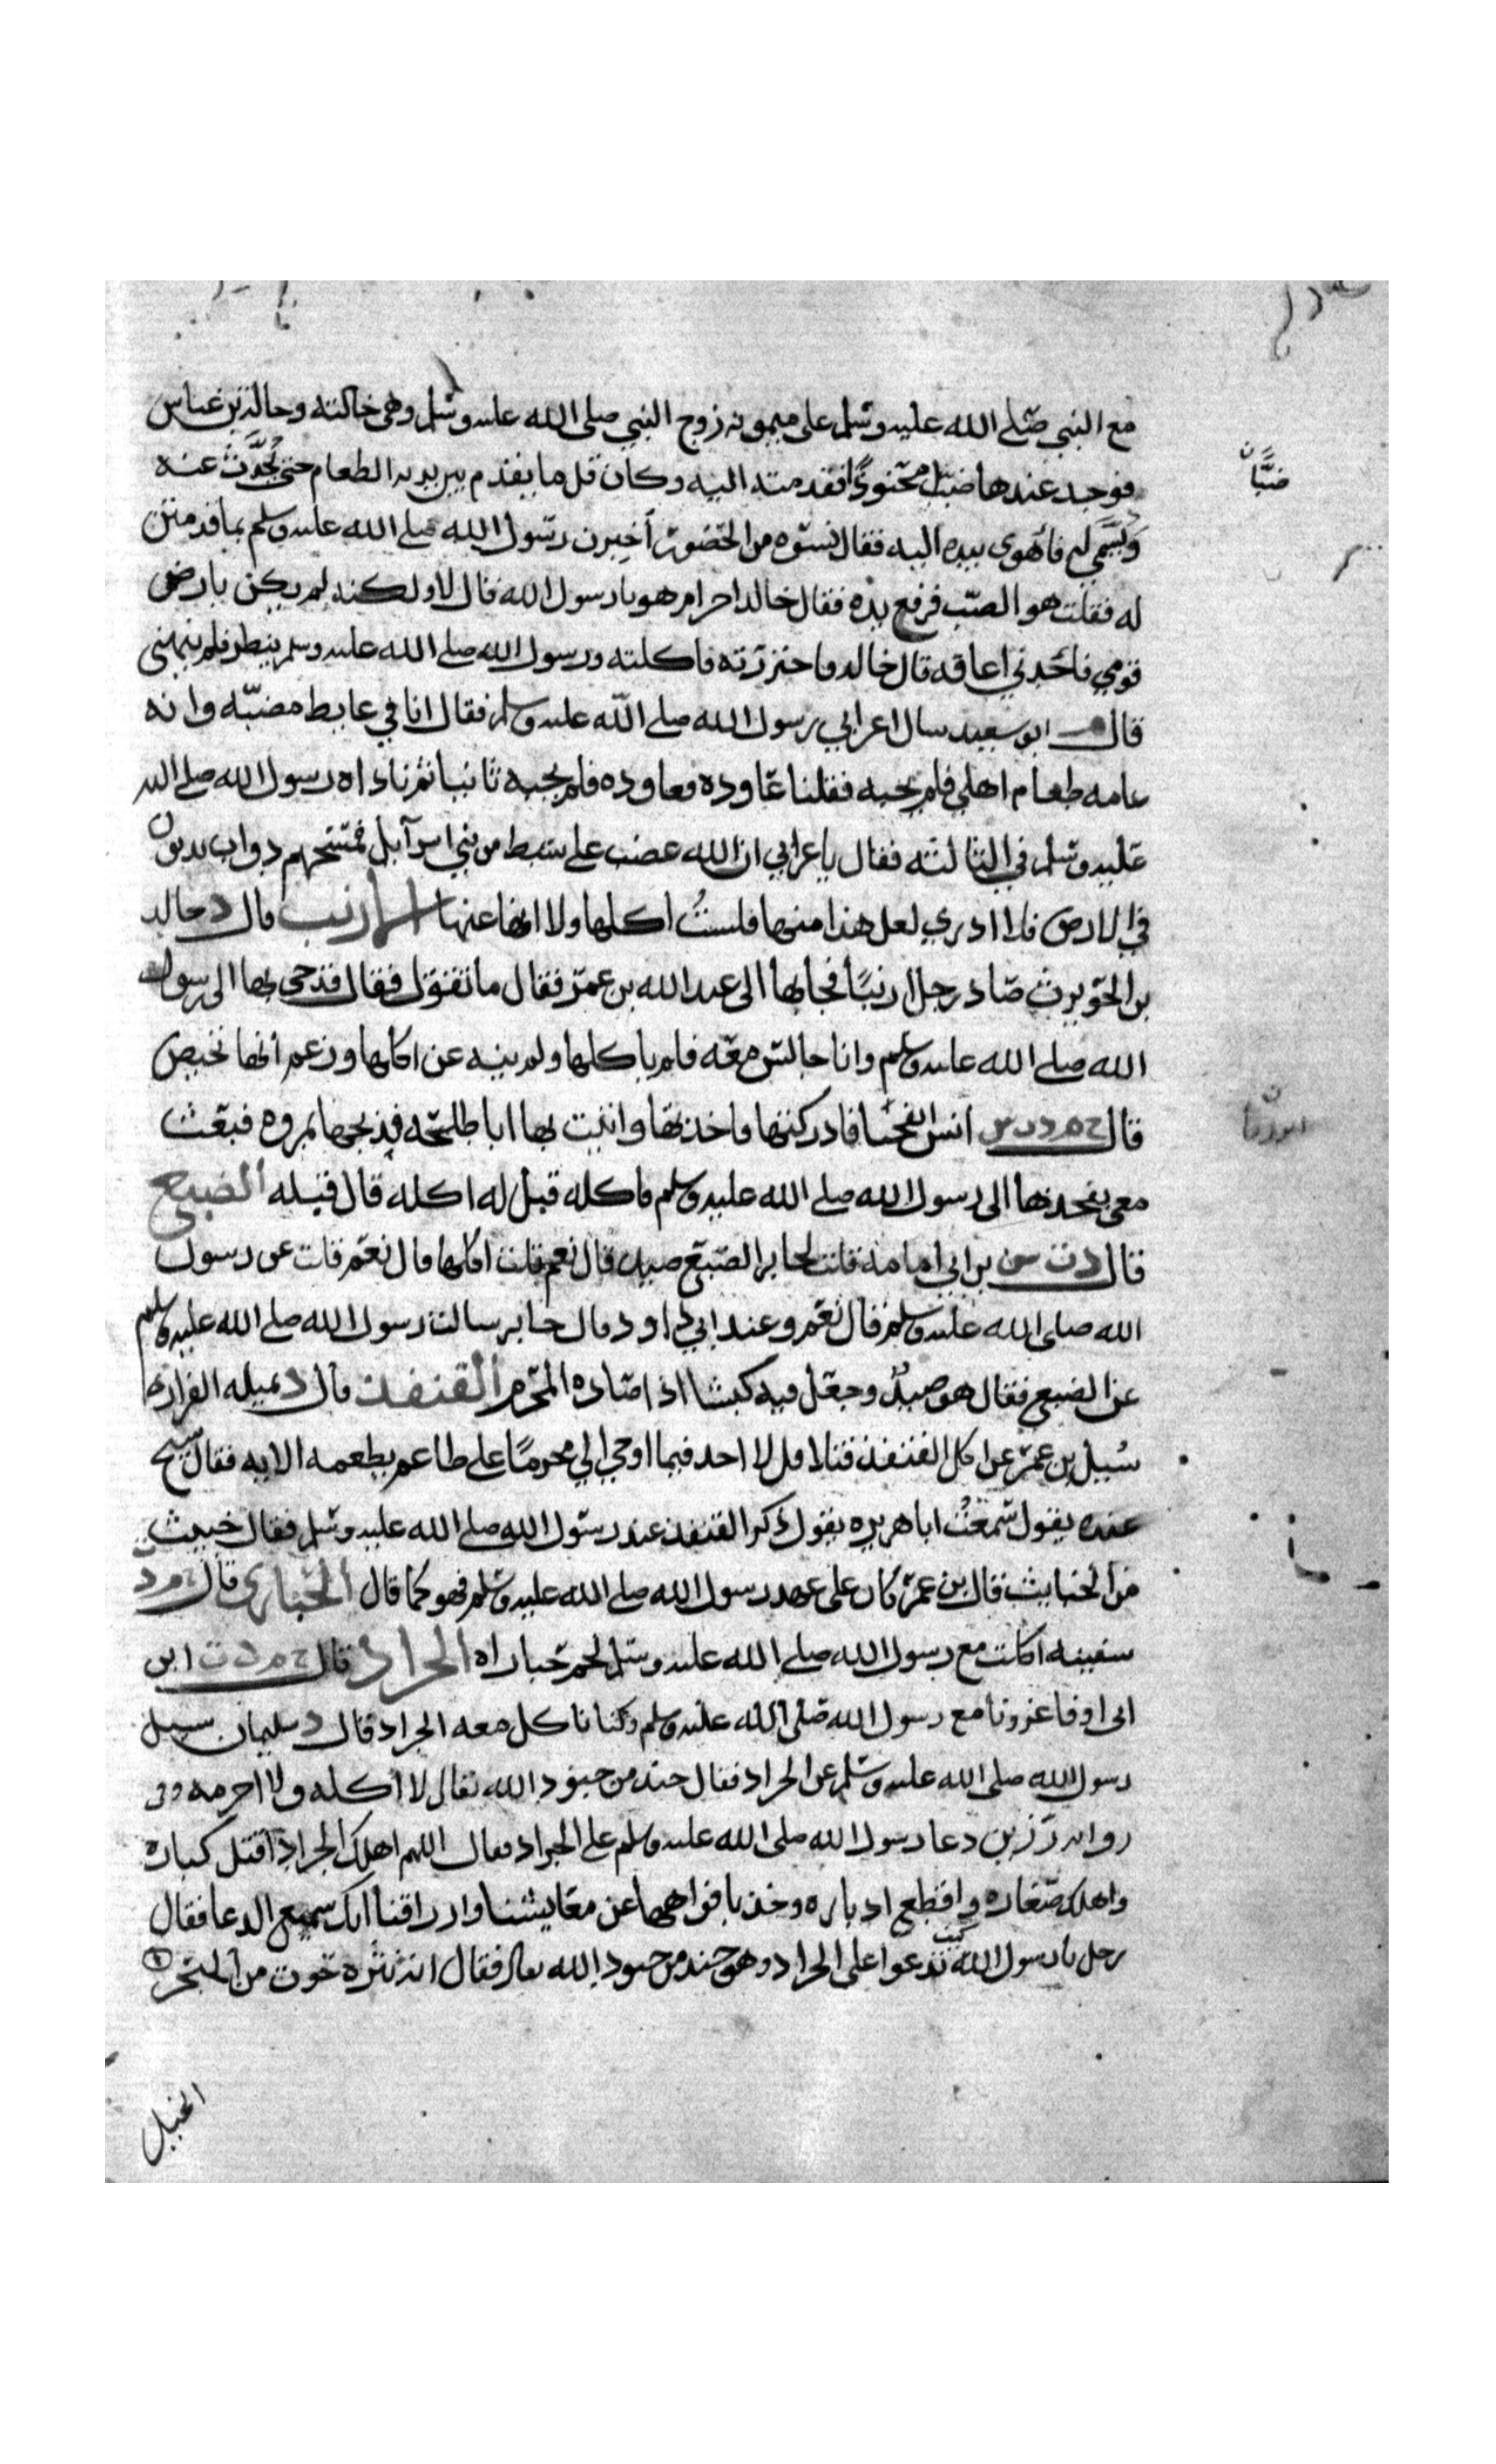 مع النبي صلى الله عليه وسلم على ميمونه زوج النبي صلى الله عليه وسلم وهى خالته وخالة بن عباس
فوجد عندها ضبا محنوذا فقدمته اليه وكان قل ما يقدم بين يديه الطعام حتى يحدث عنه
ويسمى له فاهوى بيده اليه فقال نسوه من الحضور أخبرن رسول الله صلى الله عليه وسلم بما قدمتن
له فقلت هو الضب فرفع يده فقال خالد احرام هو يا رسول الله قال لا ولكنه لم يكن بارض
قومي فاجدني اعافه قال خالد فاحتززته فاكلته ورسول الله صلى الله عليه وسلم ينظر فلم ينهنى
قال ابو سعيد سال اعرابي رسول الله صلى الله عليه وسلم فقال انا في غايط مضبه وانه
عامه طعام اهلي فلم يجبه فقلنا عاوده فعاوده فلم يجبه ثانيا ثم ناداه رسول الله صلى الله
عليه وسلم في الثالثه فقال يا عرابي ان الله غضب على سبط من بني اسرآيل فمسخهم دواب يدبون
في الارض فلا ادري لعل هذا منها فلست اكلها ولا انها عنها الارنب قال د خالد
بن الحويرث صاد رجل ارنبا فجا بها الى عبد الله بن عمر فقال ما تقول فقال قد جى بها الى رسول
الله صلى الله عليه وسلم وانا جالس معه فلم ياكلها ولم ينه عن اكلها وزعم أنها تحيض
قال خ م د ت س انس انفجنا فادركتها فاخذتها واتيت بها ابا طلحه فذبحها بمروه فبعث
معى بفخذها الى رسول الله صلى الله عليه وسلم فاكله قيل له اكله قال قبله الضبع
قال د ت س بن ابي امامة قلت لجابر الضبع صيد قال نعم قلت اكلها قال نعم قلت عن رسول
الله صلى الله عليه وسلم قال نعم وعند ابي داود قال جابر سالت رسول الله صلى الله عليه وسلم
عن الضبع فقال هو صيد وجعل فيه كبشا اذا صاده المحرم القنفذ قال د نميله الفزارى
سُيل بن عمر عن اكل القنفذ فتلا قل لا اجد فيما اوحي الي محرمًا على طاعم يطعمه الايه فقال شيخ
عنده يقول سمعت ابا هريره يقول ذكر القنفذ عند رسول الله صلى الله عليه وسلم فقال خبيث
من الخبايث فقال بن عمر كان على عهد رسول الله صلى الله عليه وسلم فهو كما قال الحبارى قال م د
سفينه اكلت مع رسول الله صلى الله عليه وسلم لحم حباراه الجراد قال خ م د ت ابن
ابى اوفا غزونا مع رسول الله صلى الله عليه وسلم وكنا ناكل معه الجراد قال د سلمان سيل
رسول الله صلى الله عليه وسلم عن الجراد فقال جند من جنود الله تعالى لا أكله ولا احرمه وفى
روايه رزين دعا رسول الله صلى الله عليه وسلم على الجراد فقال اللهم اهلك الجراد اقتل كباره
واهلك صغاره واقطع ادباره وخذ بافواهها عن معايشنا وارزاقنا انك سميع الدعا فقال
رجل يا رسول الله كيف تدعوا على الجراد وهو جند من جنود الله تعالى فقال انه نثرة حوت من البحر
الخيل
ضبًّا ن